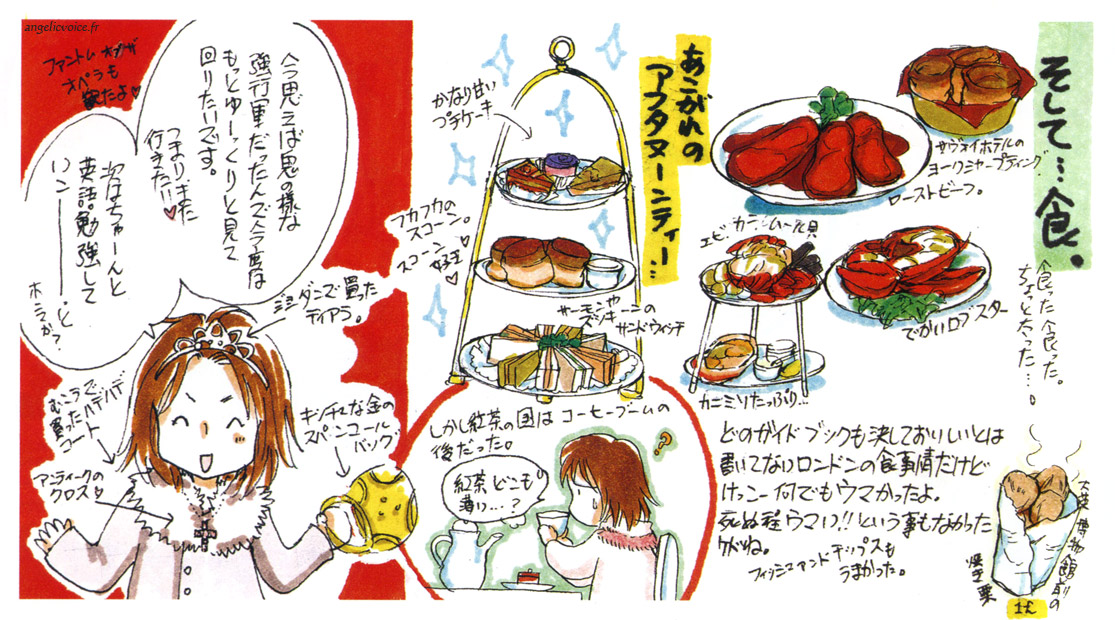 angelicvoice.fr
そして…食。
食った食った。
ちょっと太った…。
サヴォイホテルの
ヨークシャープディング
ローストビーフ。
エビ、カニ、ムール貝
でかいロブスター
カニミソたっぷり…
どのガイドブックも決しておいしいとは
書いてないロンドンの食事情だけど
けっこー何でもウマかったよ。
死ぬ程ウマい!!という事もなかった
けどね。
フィッシュアンドチップスも
うまかった。
大英博物館前の
焼き栗
1£
あこがれの
アフタヌーンティー…
かなり甘い
プチケーキ
フカフカの
スコーン。
スコーン大好き♡
サーモンや
ズッキーニの
サンドウィッチ
しかし紅茶の国はコーヒーブームの
後だった。
紅茶どこも
薄い…?
?
今思えば鬼の様な
強行軍だったんで今度は
もっとゆーっくりと見て
回りたいです。
つまりまた
行きたい♥
ファントム オブ ザ
オペラも
観たよ♡
次はちゃーんと
英語勉強して
いこー――。と
ホントか?
ミラダニで買った
ティアラ。
むこうで
買ったハデハデ
コート
アンティークの
クロス
キッチュな金の
スパンコール
バッグ